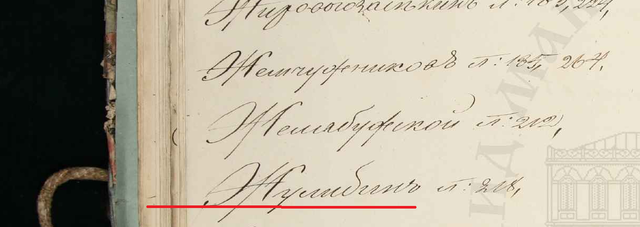 Жировогозапькинъ л: 183, 224,
Жемчужниковъ л: 135, 264,
Желабужской л: 212,
Жулибинъ л: 218,